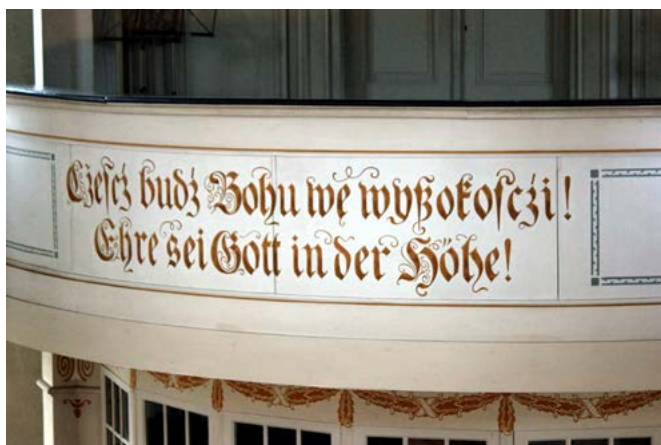 Cżeſcż budż Bohu wę wyßokoſcżi!
Ehre sei Gott in der Höhe!